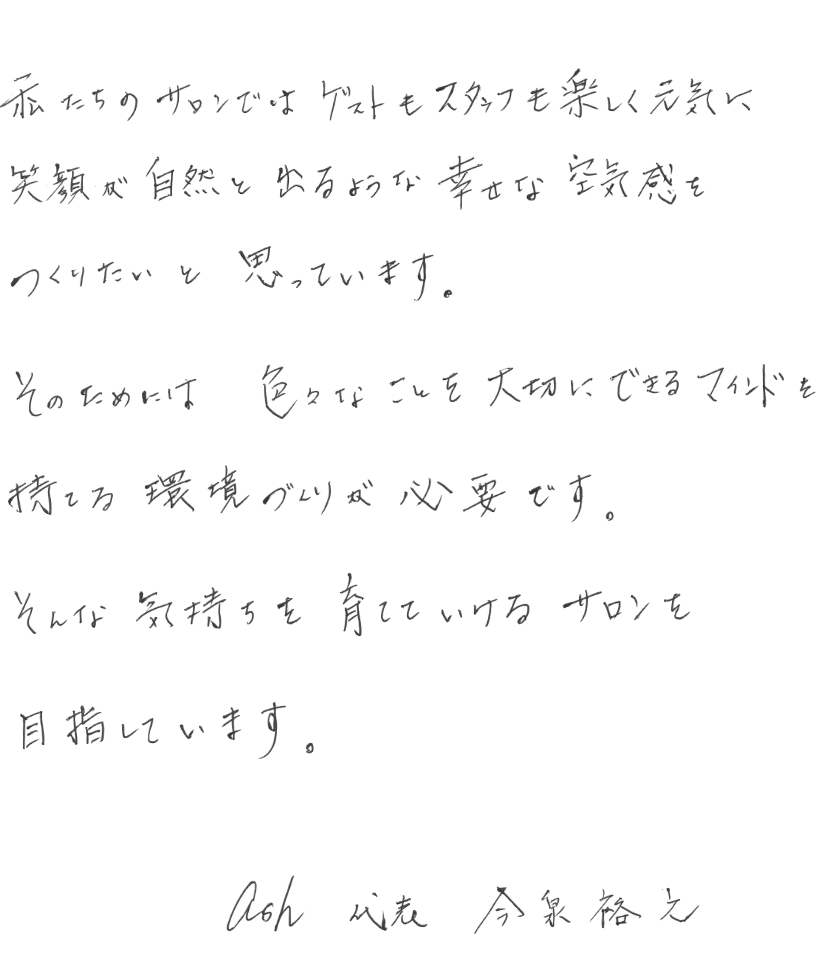 私たちのサロンではゲストもスタッフも楽しく元気に
笑顔が自然と出るような幸せな空気感を
つくりたいと思っています。
そのためには色々なことを大切にできるマインドを
持てる環境づくりが必要です。
そんな気持ちを育てていけるサロンを
目指しています。
ash 代表 今泉裕元